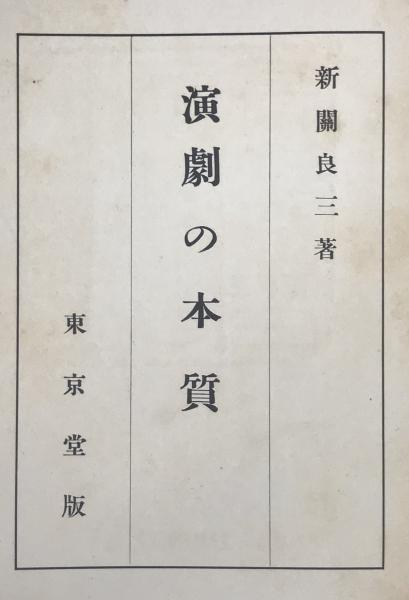 新關良三著
演劇の本質
東京堂版